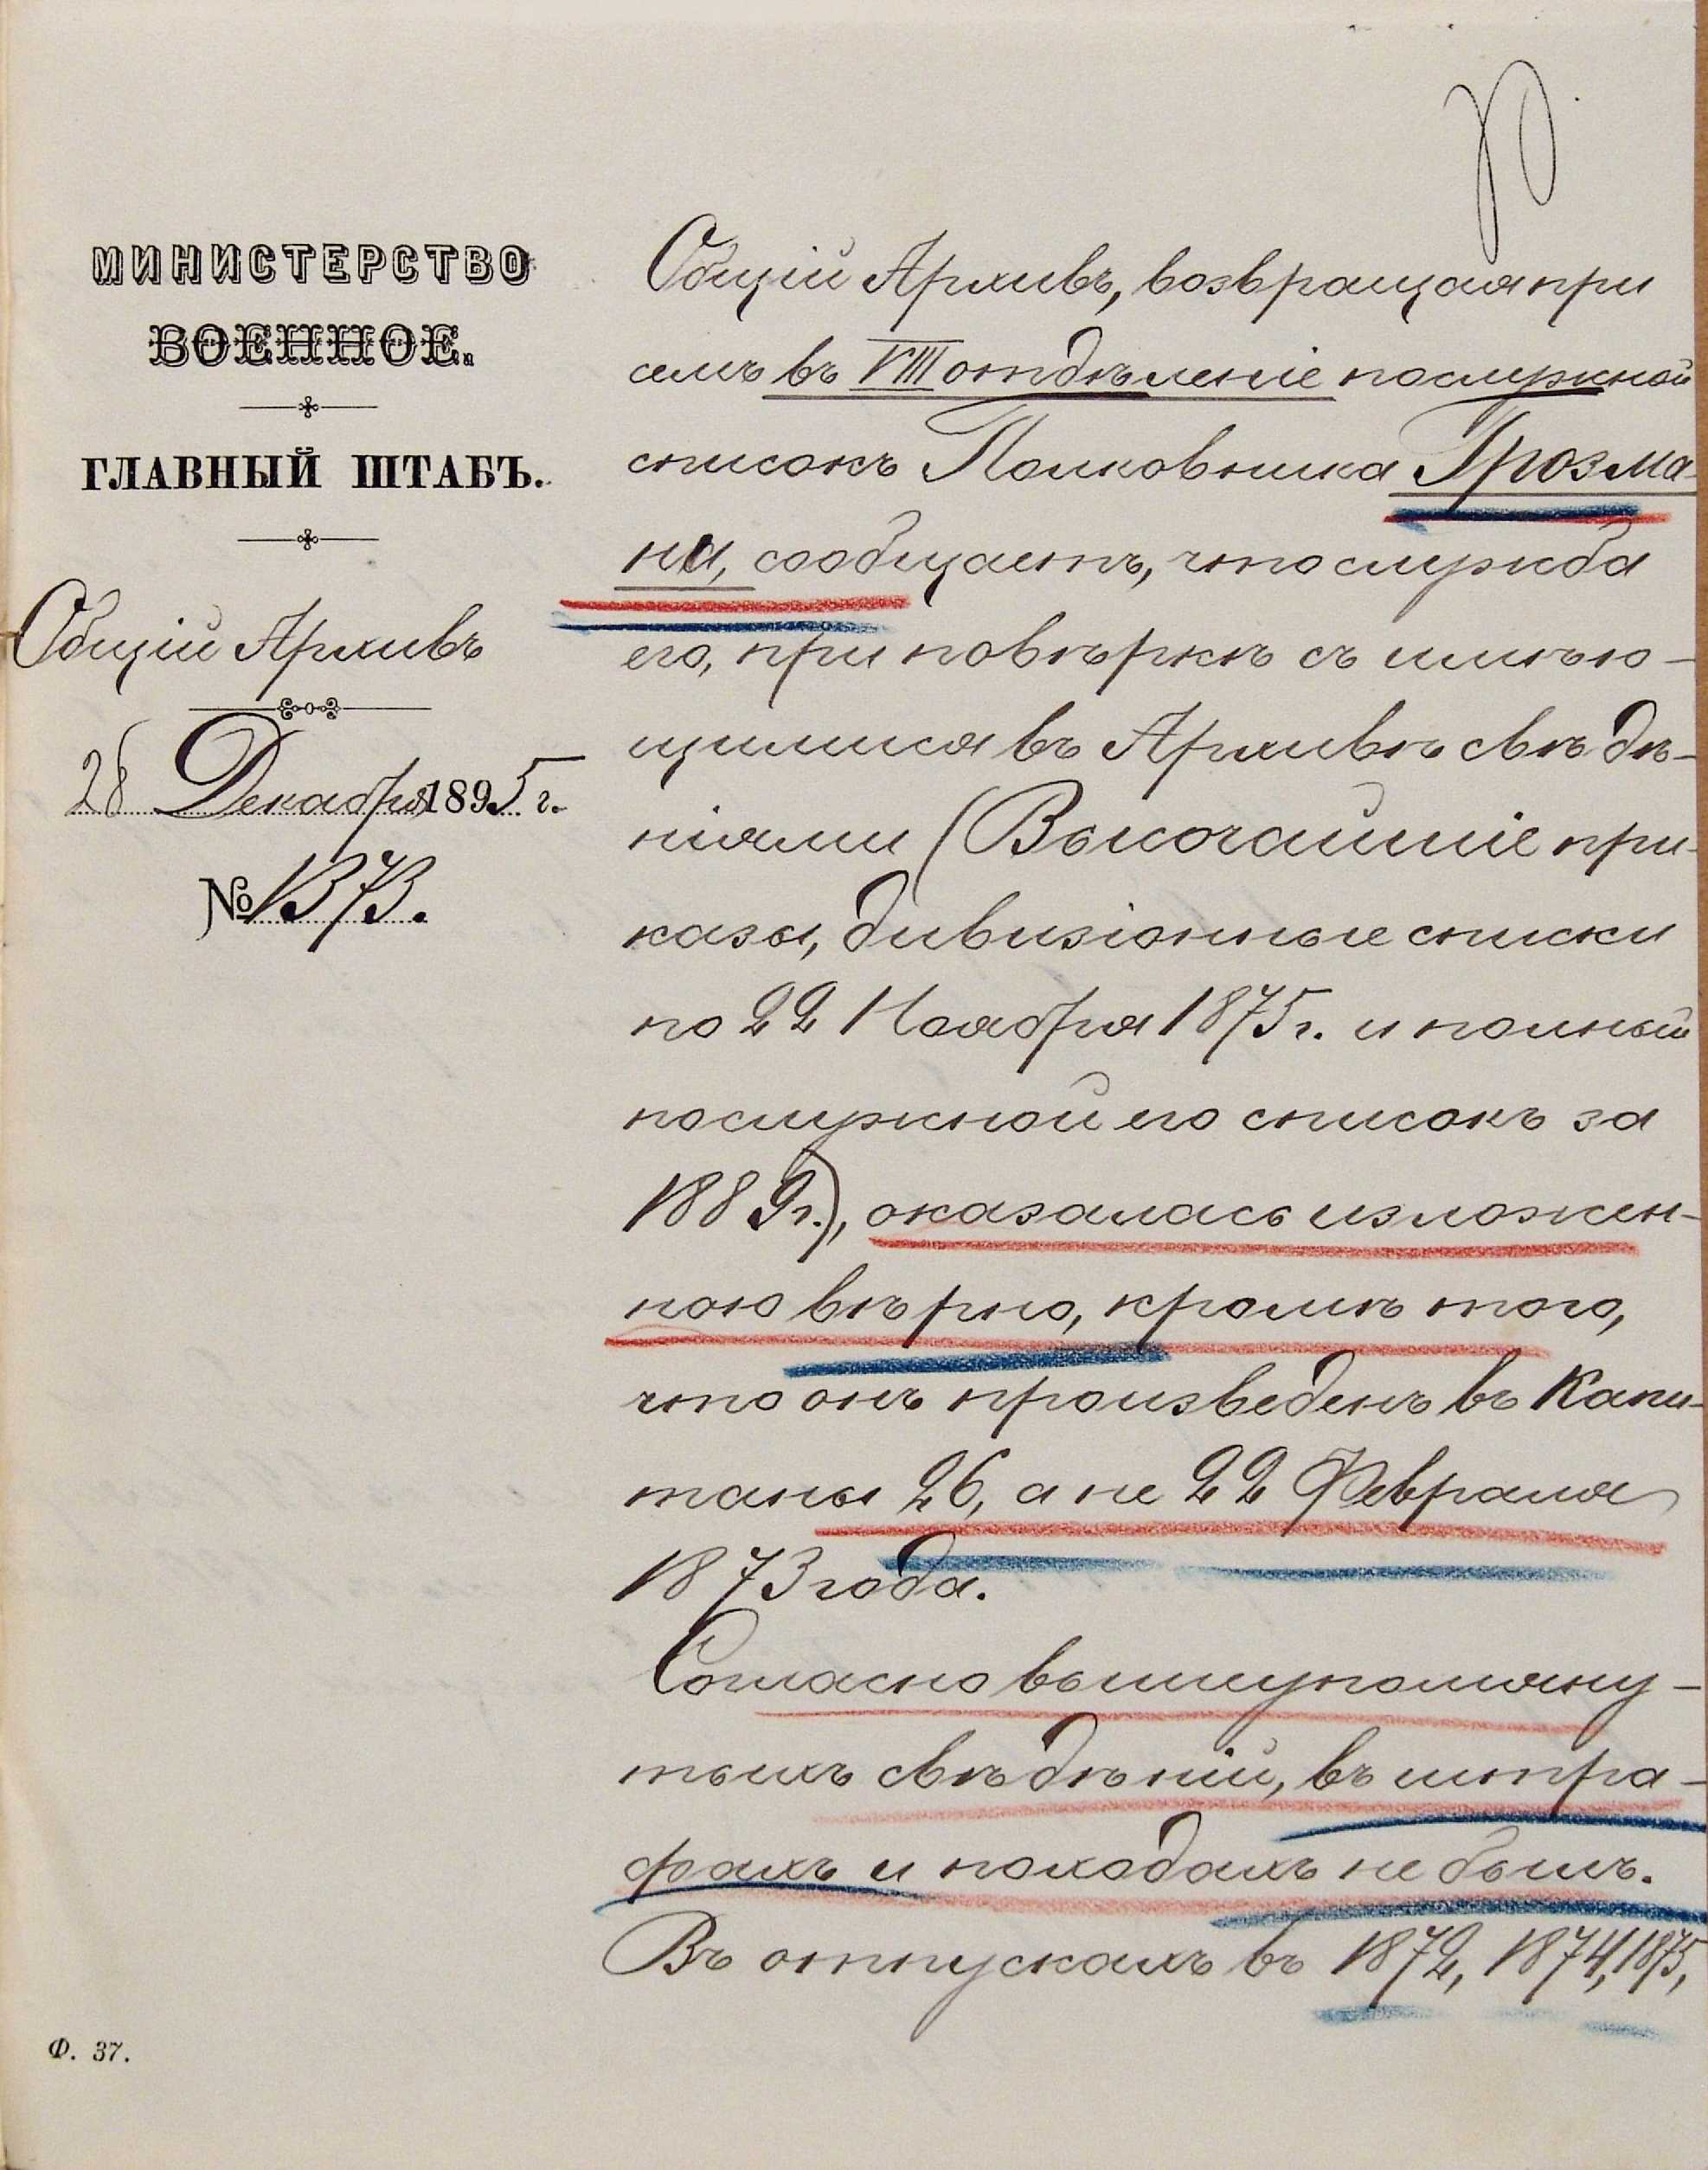 МИНИСТЕРСТВО
ВОЕННОЕ.
ГЛАВНЫЙ ШТАБЪ.
Общій Архивъ
28 Декабря 1895 г.
№ 1373.
Общій Архивъ, возвращая при
семъ въ VIII отдѣленіе послужной
списокъ Полковника Грозма-
на, сообщаетъ, что служба
его, при повѣркѣ съ имѣю-
щимися въ Архивѣ свѣдѣ-
ніями (Высочайшіе при-
казы, дивизіонные списки
по 22 Ноября 1875 г. и полный
послужной его списокъ за
1889 г.), оказалась изложен-
ною вѣрно, кромѣ того,
что онъ произведенъ въ Капи-
таны 26, а не 22 Февраля
1873 года.
Согласно вышеупомяну-
тыхъ свѣдѣній, въ штра-
фахъ и походахъ не былъ.
Въ отпускахъ въ 1872, 1874, 1875,
Ф. 37.